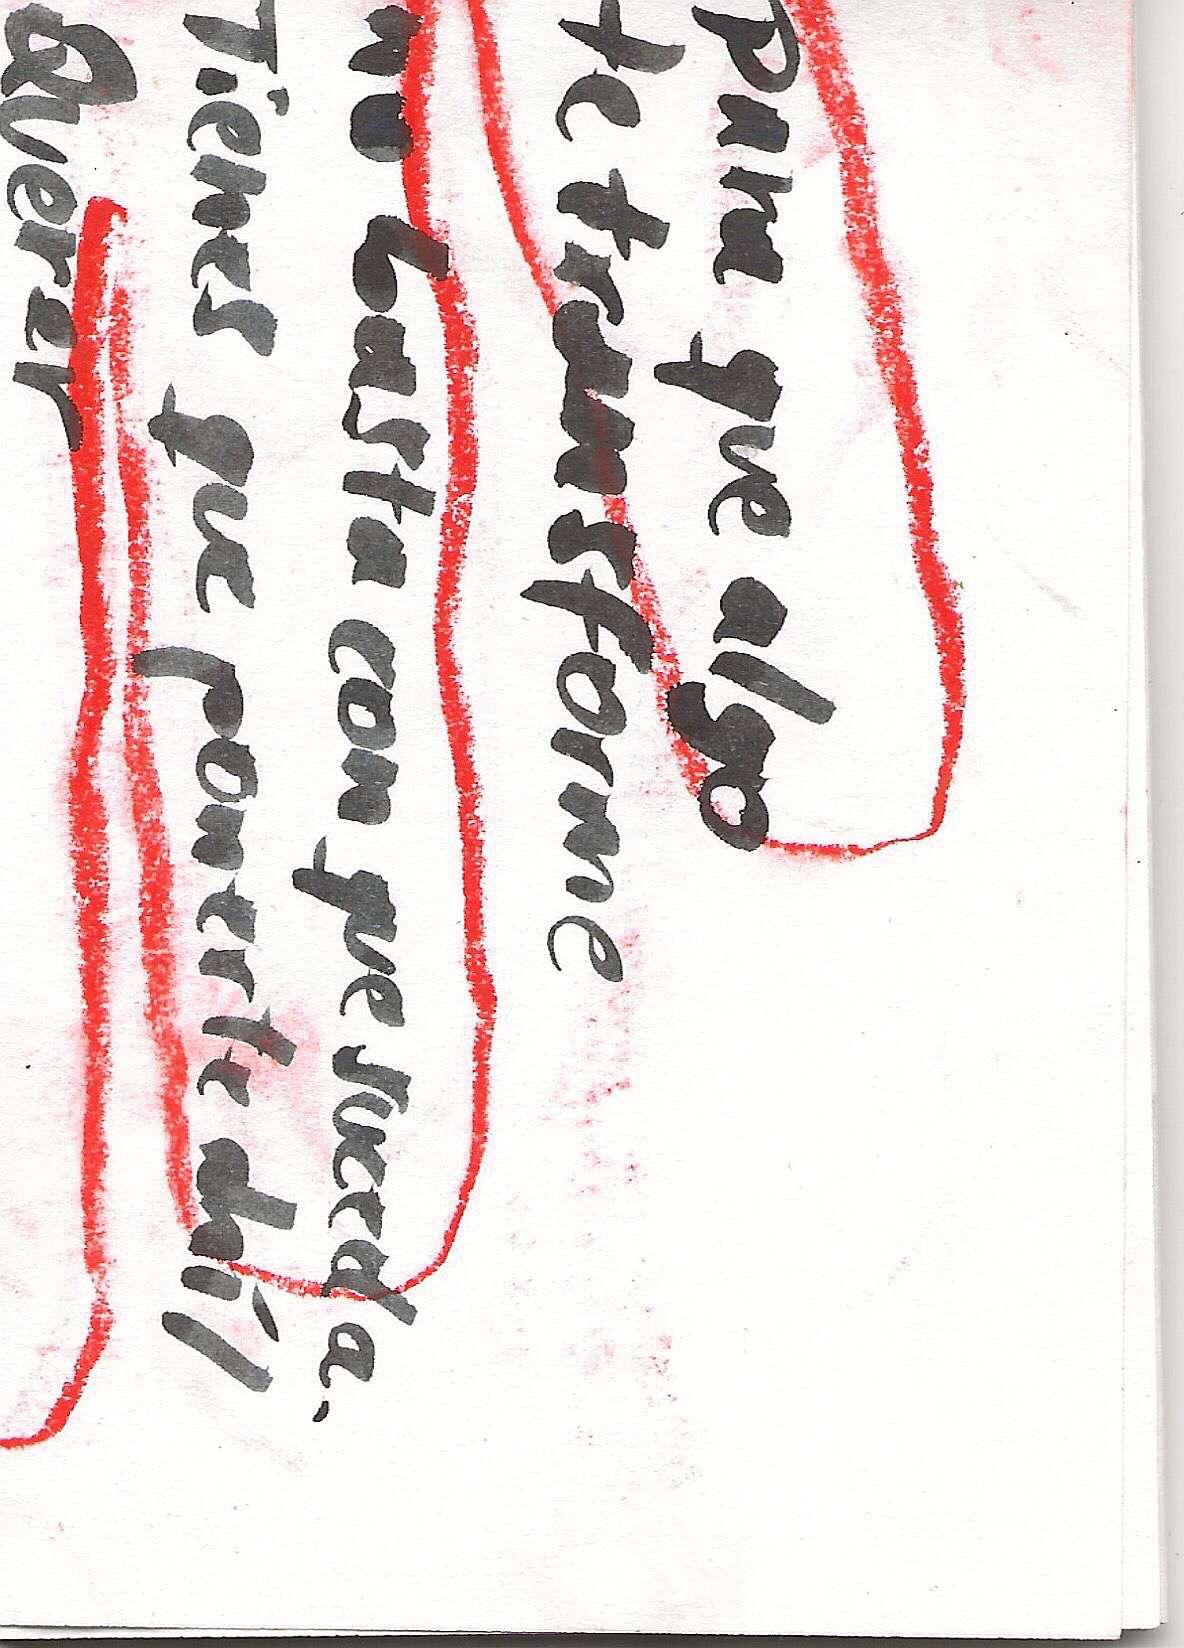 Para que algo
te transforme
no basta con que suceda.
Tienes que ponerte ahí/
Querer